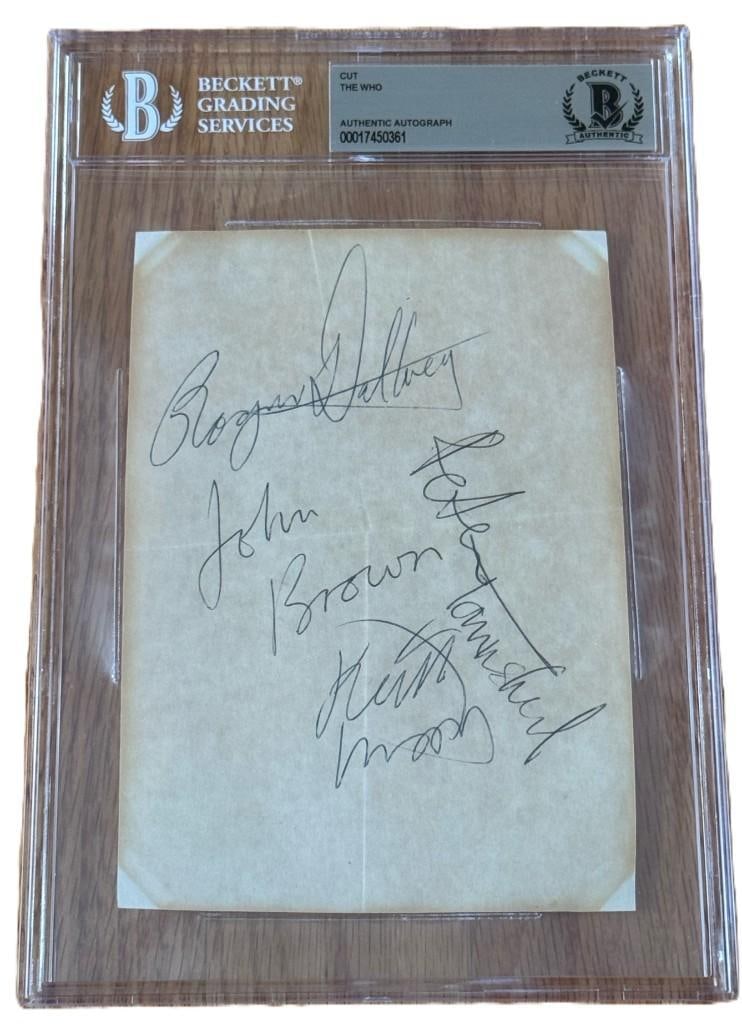 BECKETT®
GRADING
SERVICES
B
CUT
THE WHO
AUTHENTIC AUTOGRAPH
00017450361
BECKETT
B
AUTHENTIC
Roger Daltrey
John
Brown
Peter Townshend
Keith
Moon